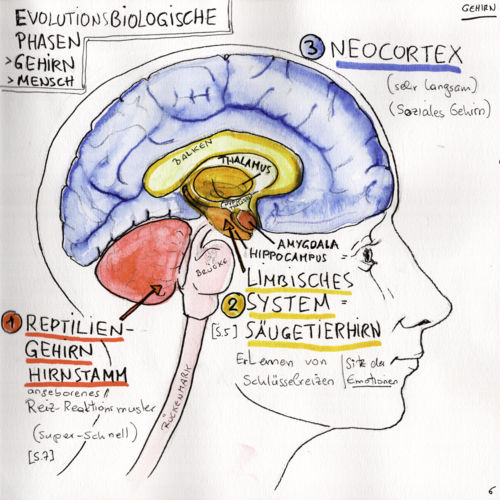 EVOLUTIONSBIOLOGISCHE
PHASEN
>GEHIRN
>MENSCH
GEHIRN
3 NEOCORTEX
(sehr langsam)
(Soziales Gehirn)
BALKEN
THALAMUS
AMYGDALA
HIPPOCAMPUS
BRÜCKE
LIMBISCHES
2 SYSTEM =
[S.5] SÄUGETIERHIRN
ErLernen von
Schlüsselreizen
Sitz der
Emotionen
1 REPTILIEN-
GEHIRN
HIRNSTAMM
angeborenes
Reiz-Reaktionsmuster
(Super-Schnell)
[S.7]
RÜCKENMARK
6